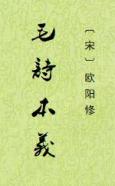 〔宋〕欧阳修
毛詩本義